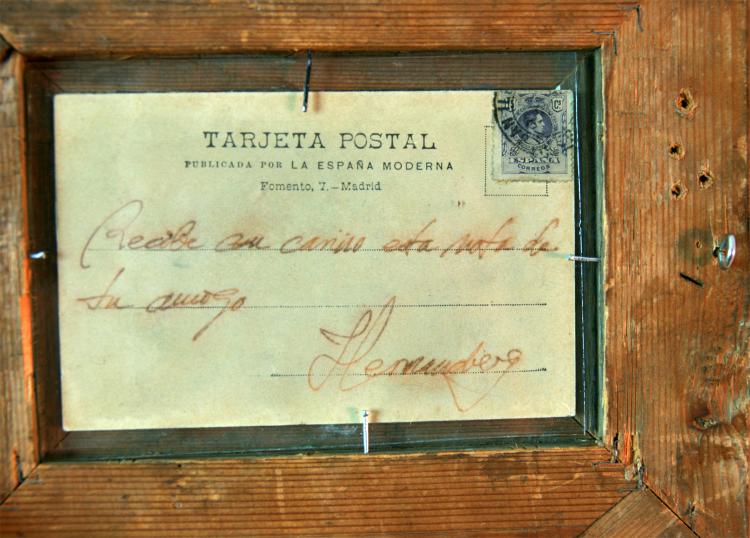 TARJETA POSTAL
PUBLICADA POR LA ESPAÑA MODERNA
Fomento, 7.—Madrid
15 Cs
ESPAÑA
CORREOS
Recibe con cariño esta nota de
tu amigo